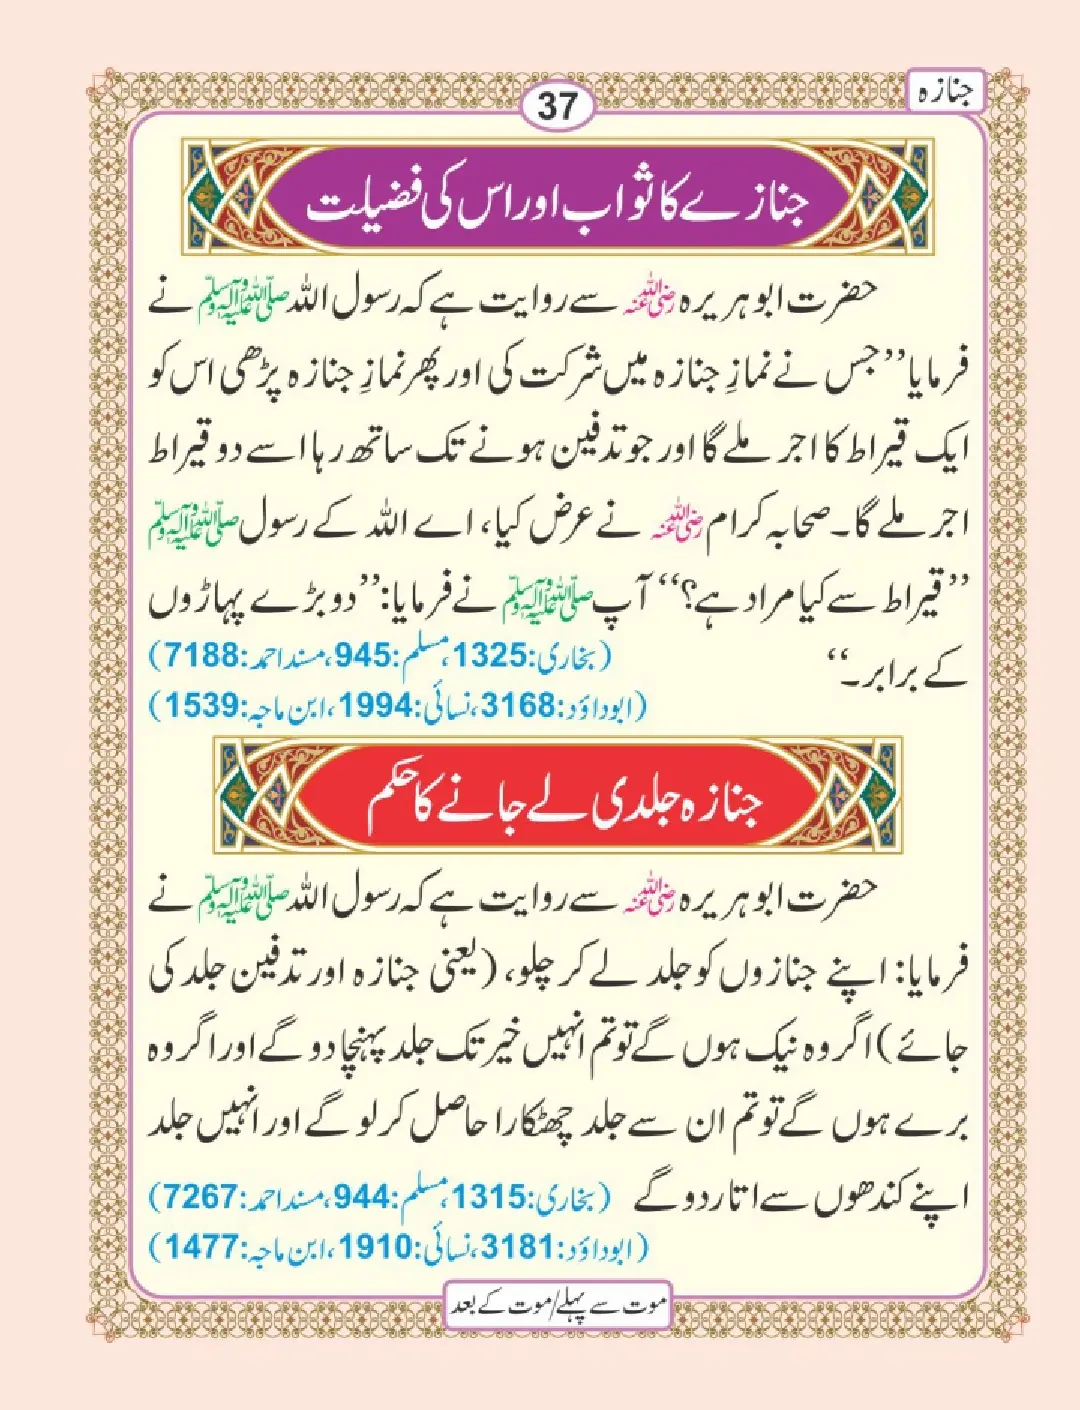 جنازہ
37
جنازے کا ثواب اور اس کی فضیلت
حضرت ابو ہریرہ رضی اللہ عنہ سے روایت ہے کہ رسول اللہ صلی اللہ علیہ وسلم نے
فرمایا ’’جس نے نمازِ جنازہ میں شرکت کی اور پھر نمازِ جنازہ پڑھی اس کو
ایک قیراط کا اجر ملے گا اور جو تدفین ہونے تک ساتھ رہا اسے دو قیراط
اجر ملے گا۔ صحابہ کرام رضی اللہ عنہ نے عرض کیا، اے اللہ کے رسول صلی اللہ علیہ وسلم
’’قیراط سے کیا مراد ہے؟‘‘ آپ صلی اللہ علیہ وسلم نے فرمایا: ’’دو بڑے پہاڑوں
کے برابر۔‘‘ (بخاری:1325، مسلم:945، مسند احمد:7188)
(ابوداؤد:3168، نسائی:1994، ابن ماجہ:1539)
جنازہ جلدی لے جانے کا حکم
حضرت ابو ہریرہ رضی اللہ عنہ سے روایت ہے کہ رسول اللہ صلی اللہ علیہ وسلم نے
فرمایا: اپنے جنازوں کو جلد لے کر چلو، (یعنی جنازہ اور تدفین جلد کی
جائے) اگر وہ نیک ہوں گے تو تم انہیں خیر تک جلد پہنچا دو گے اور اگر وہ
برے ہوں گے تو تم ان سے جلد چھٹکارا حاصل کر لو گے اور انہیں جلد
اپنے کندھوں سے اتار دو گے (بخاری:1315، مسلم:944، مسند احمد:7267)
(ابوداؤد:3181، نسائی:1910، ابن ماجہ:1477)
موت سے پہلے/موت کے بعد